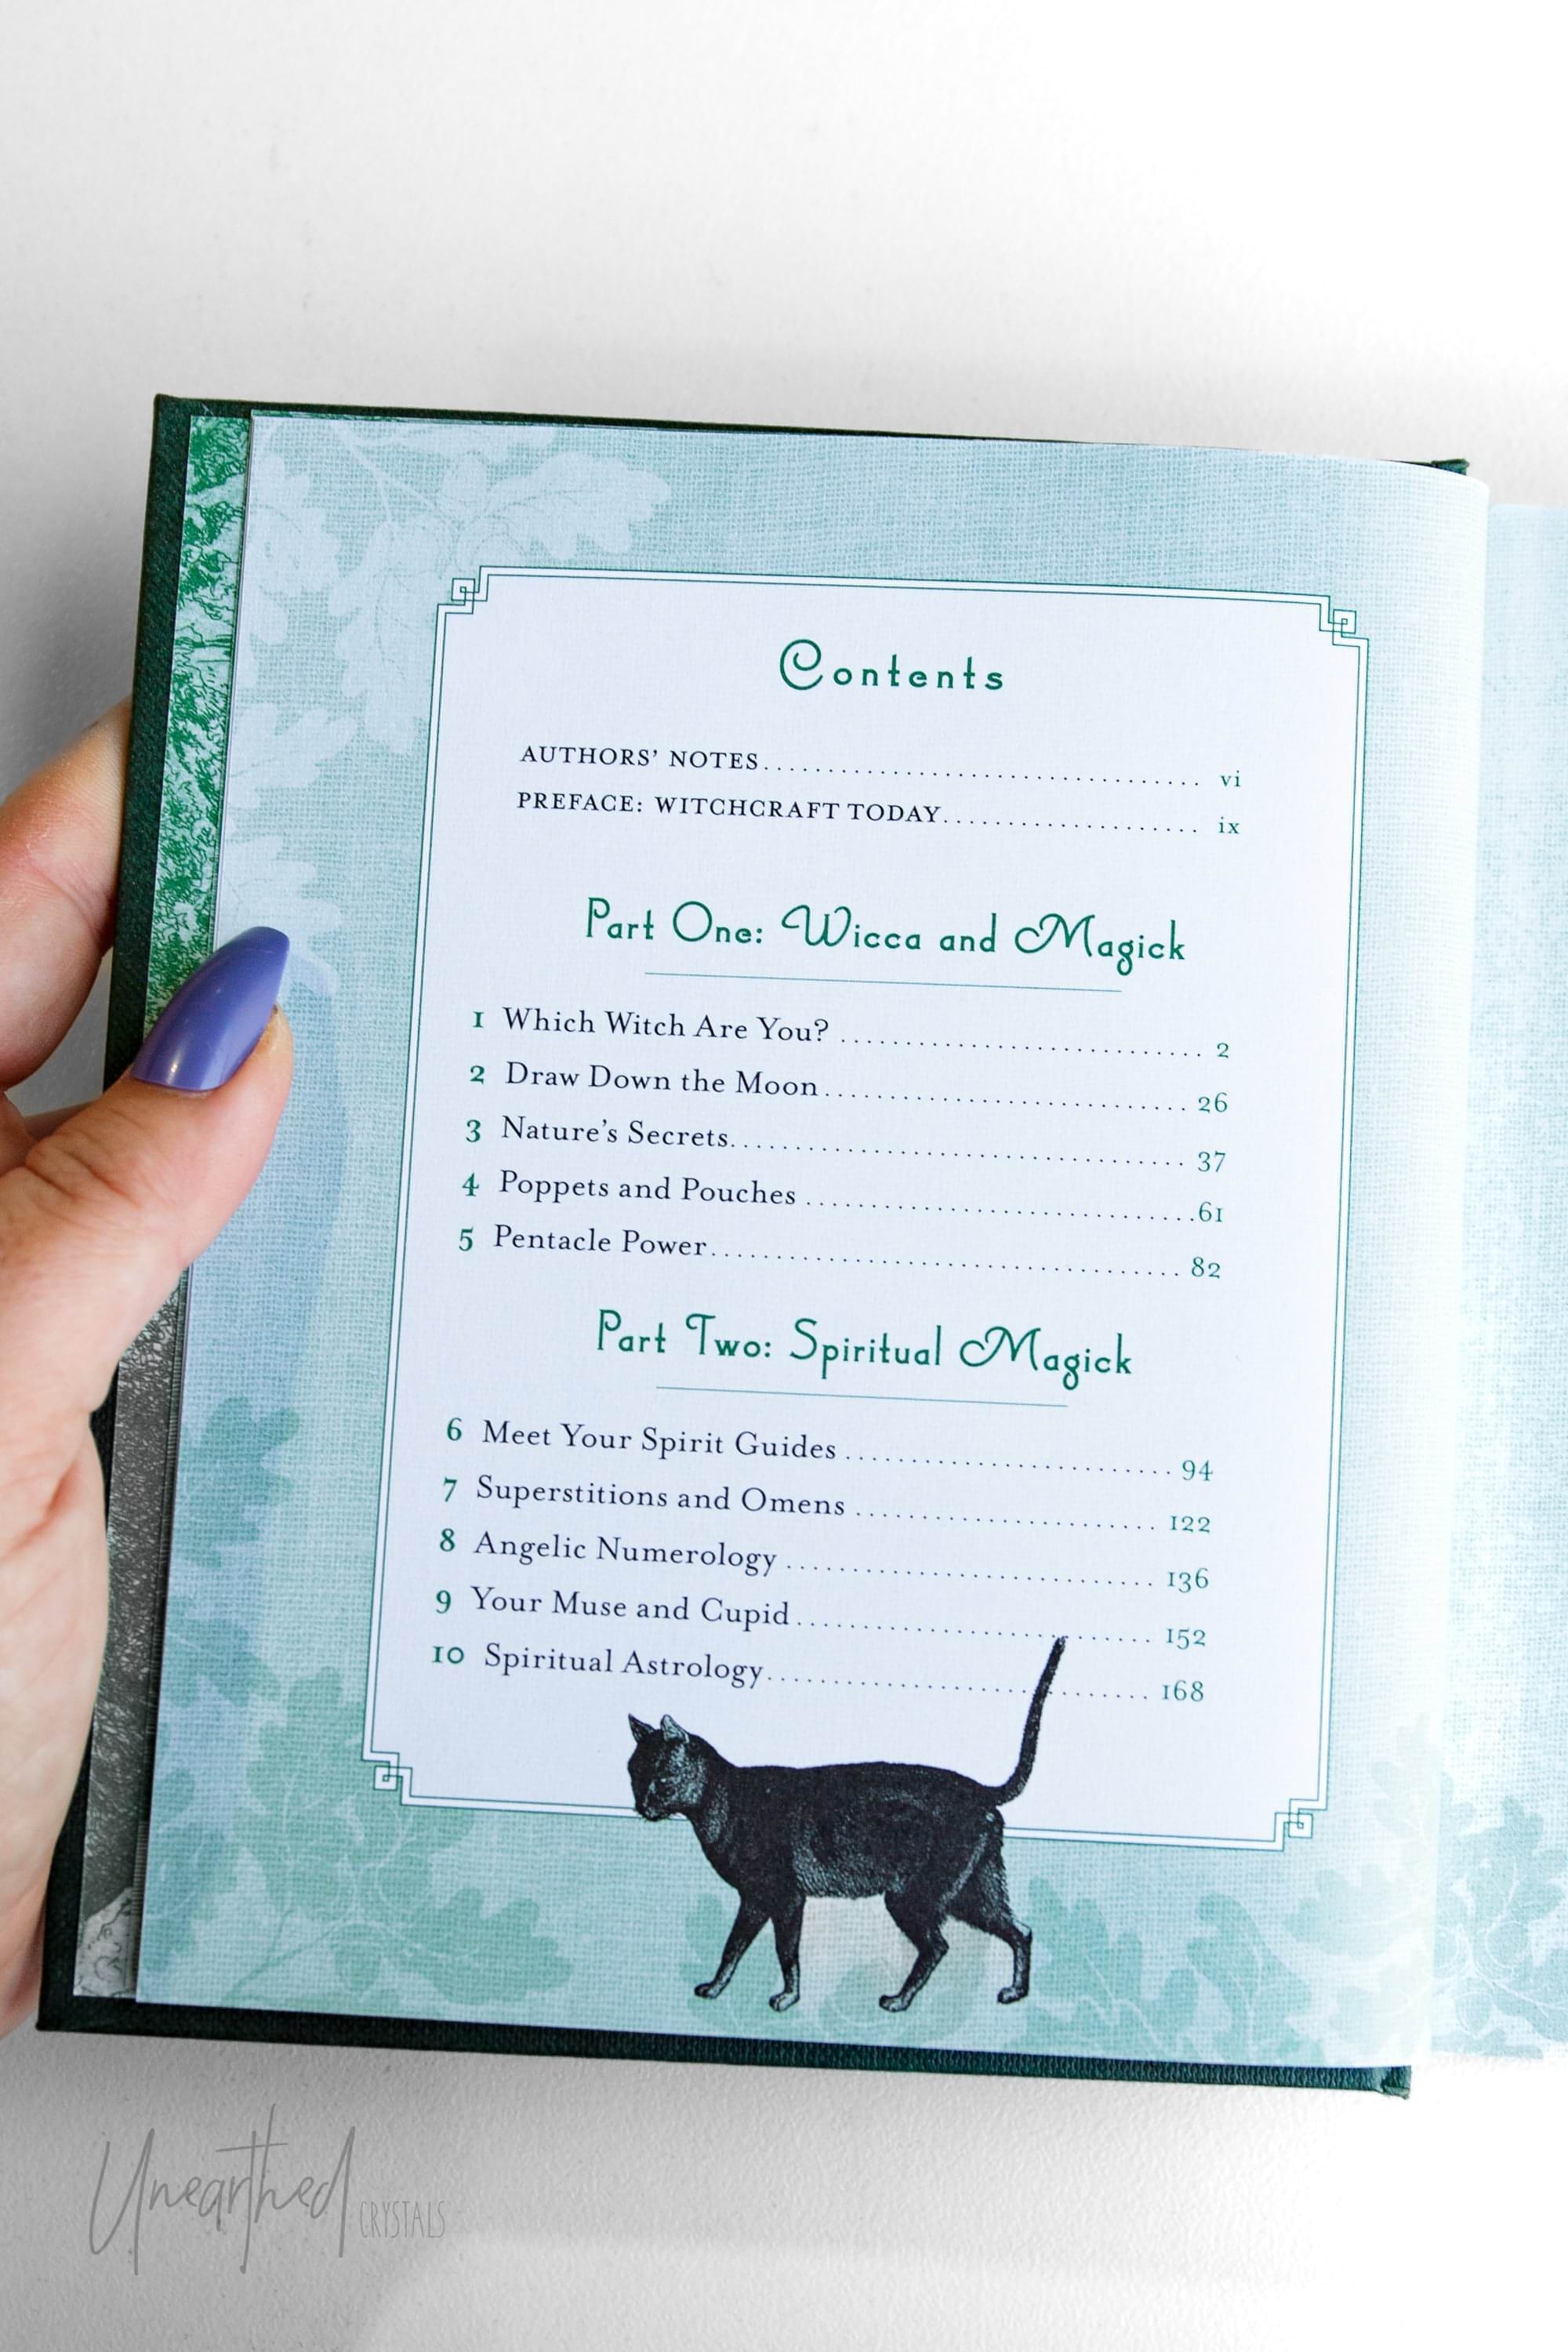 Contents
AUTHORS' NOTES.................................. vi
PREFACE: WITCHCRAFT TODAY.................... ix
Part One: Wicca and Magick
1 Which Witch Are You? ............................ 2
2 Draw Down the Moon............................ 26
3 Nature's Secrets................................... 37
4 Poppets and Pouches ..............................61
5 Pentacle Power.................................... 82
Part Two: Spiritual Magick
6 Meet Your Spirit Guides ......................... 94
7 Superstitions and Omens ....................... 122
8 Angelic Numerology ............................ 136
9 Your Muse and Cupid........................... 152
10 Spiritual Astrology............................. 168
Unearthed CRYSTALS